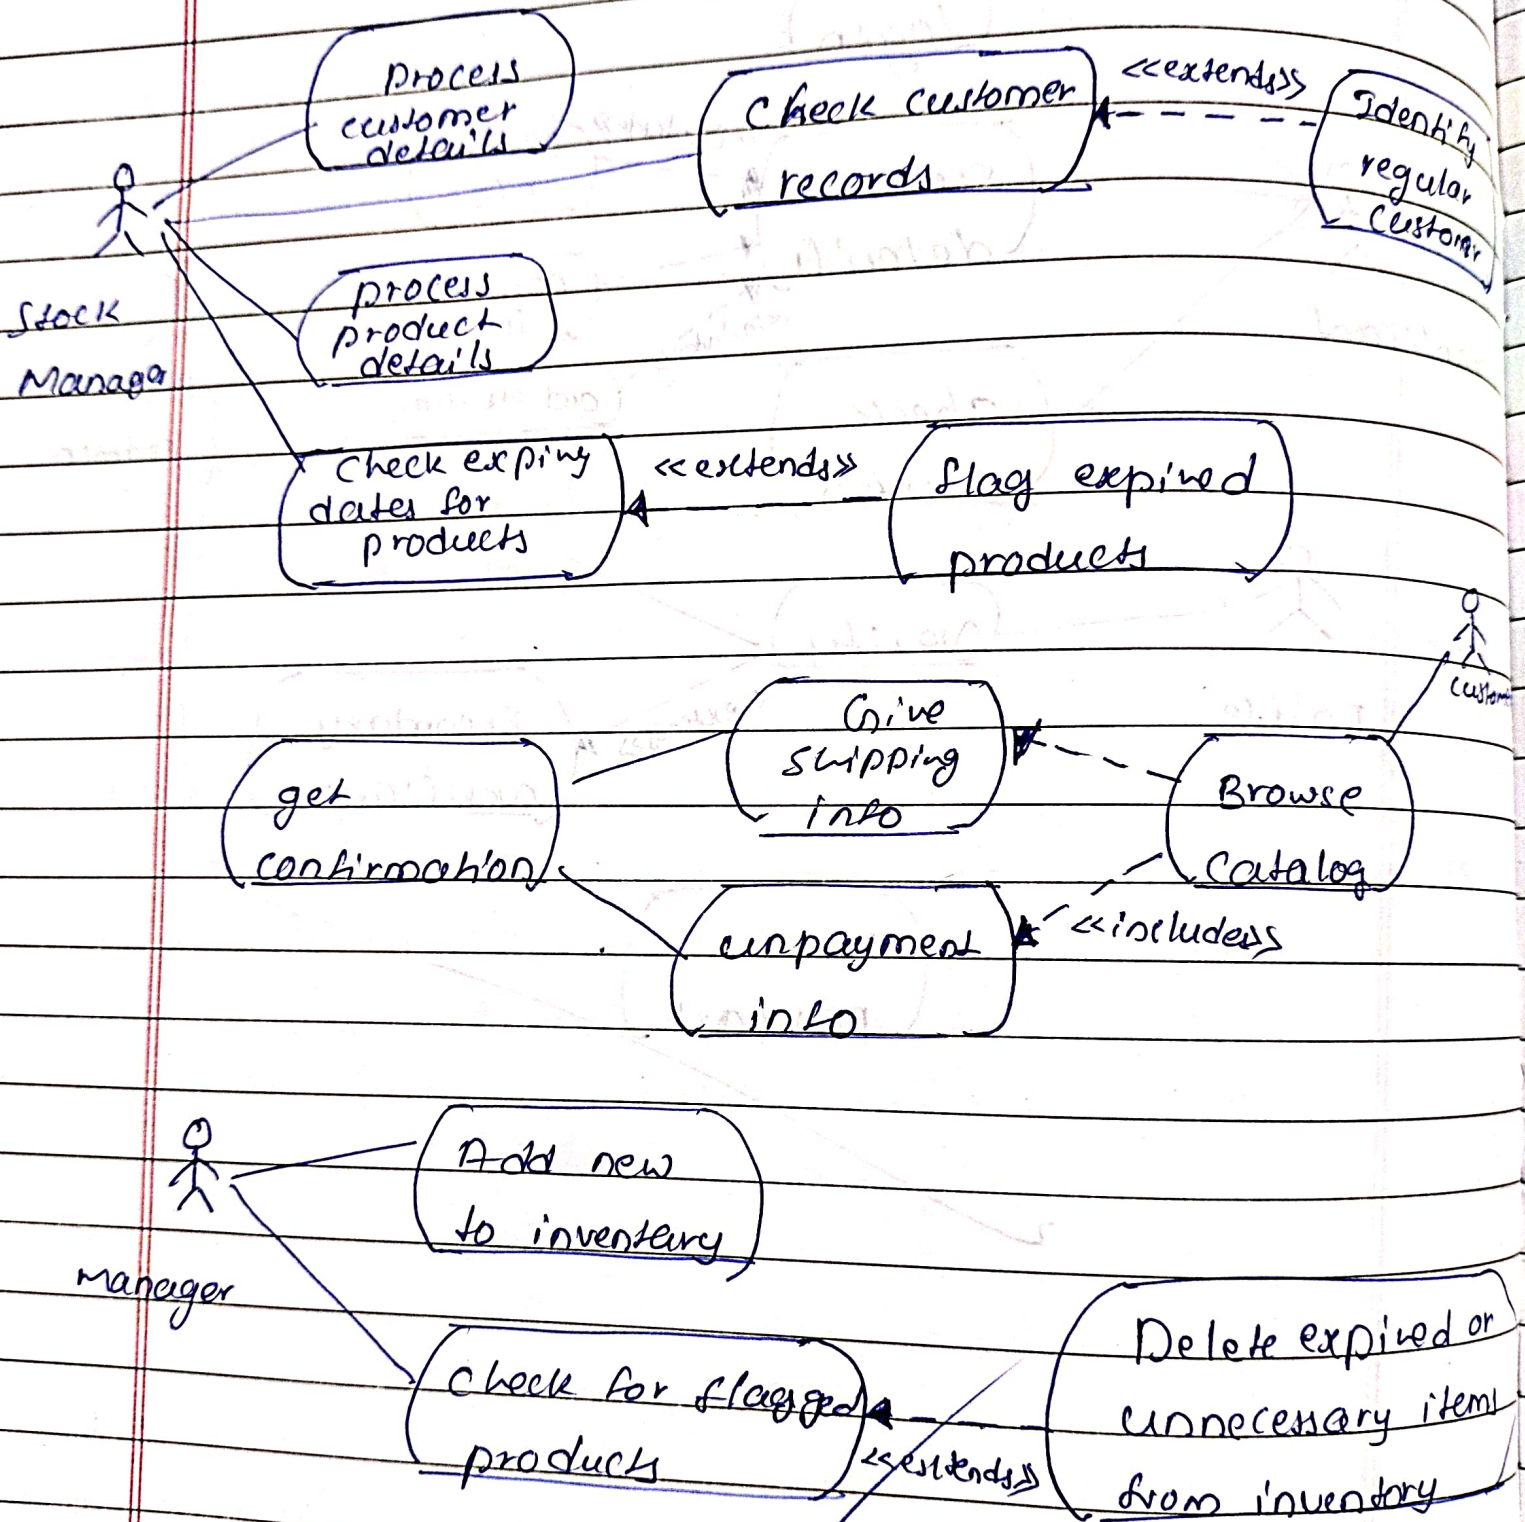 Process
customer
details
Check customer
records
<<extends>>
Identify
regular
customer
Stock
Manager
process
product
details
Check expiry
dates for
products
<<extends>>
flag expired
products
Custom
Give
shipping
info
get
confirmation
Browse
Catalog
unpayment
info
<<includes>>
Add new
to inventary
manager
Check for flagged
products
<<extends>>
Delete expired or
unnecessary items
from inventory